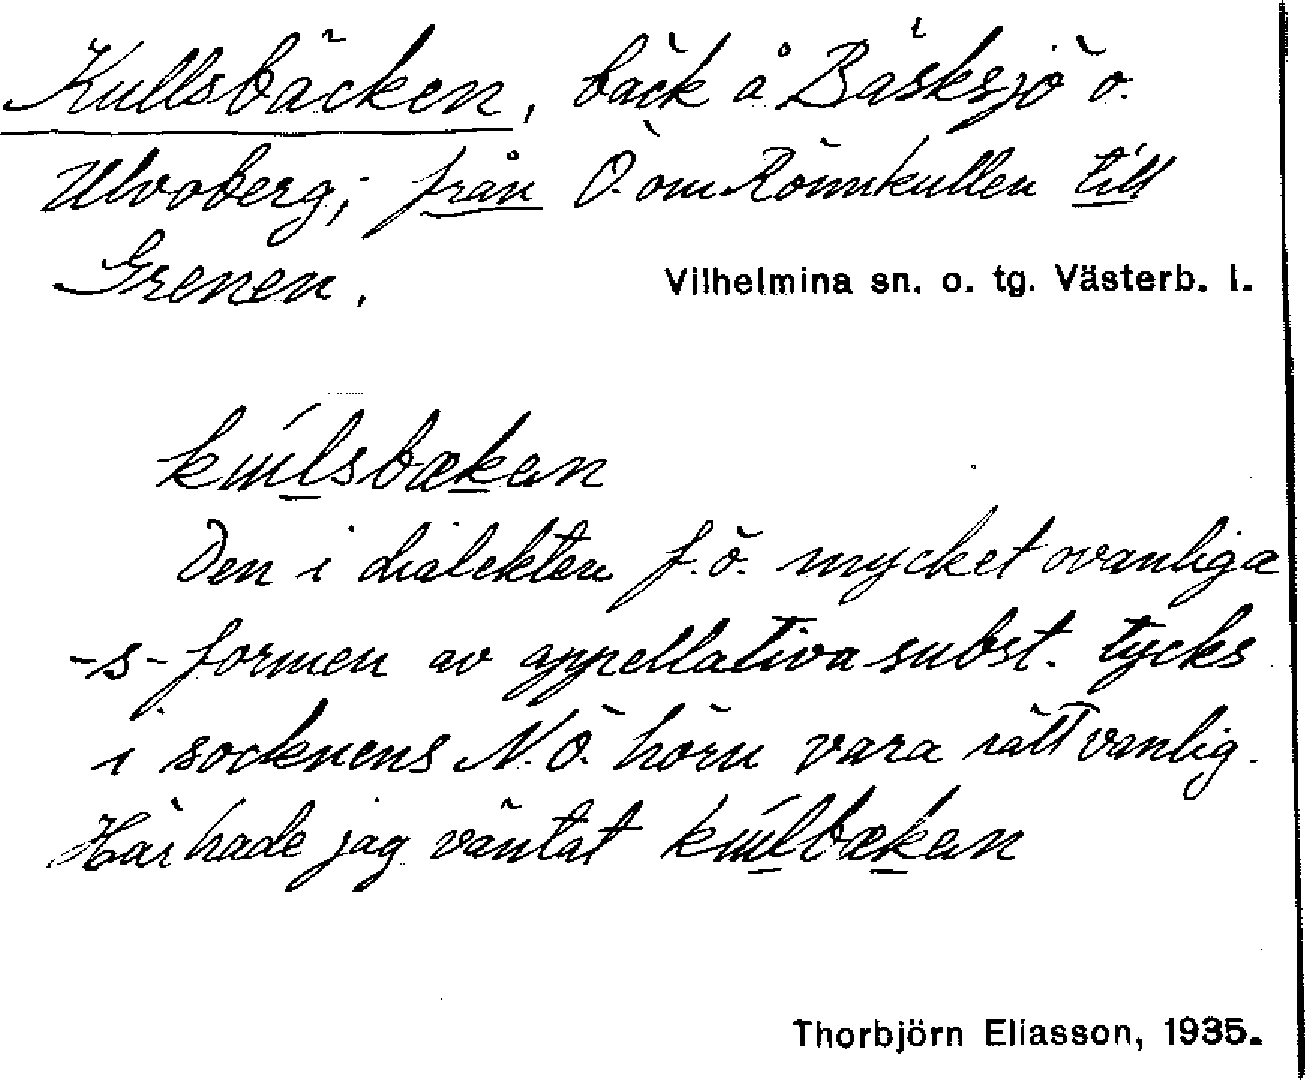 Kullsbäcken, bäck å Bäsksjö o.
Ulvoberg; från Ö. om Rönnkullen till
Grenen.
Vilhelmina sn. o. tg. Västerb. l.
kúlsbækan
Den i dialekten f.ö. mycket ovanliga
-s-formen av appellativa subst. tycks
i socknens N.Ö. hörn vara rätt vanlig.
Här hade jag väntat kúlbækan
Thorbjörn Eliasson, 1935.